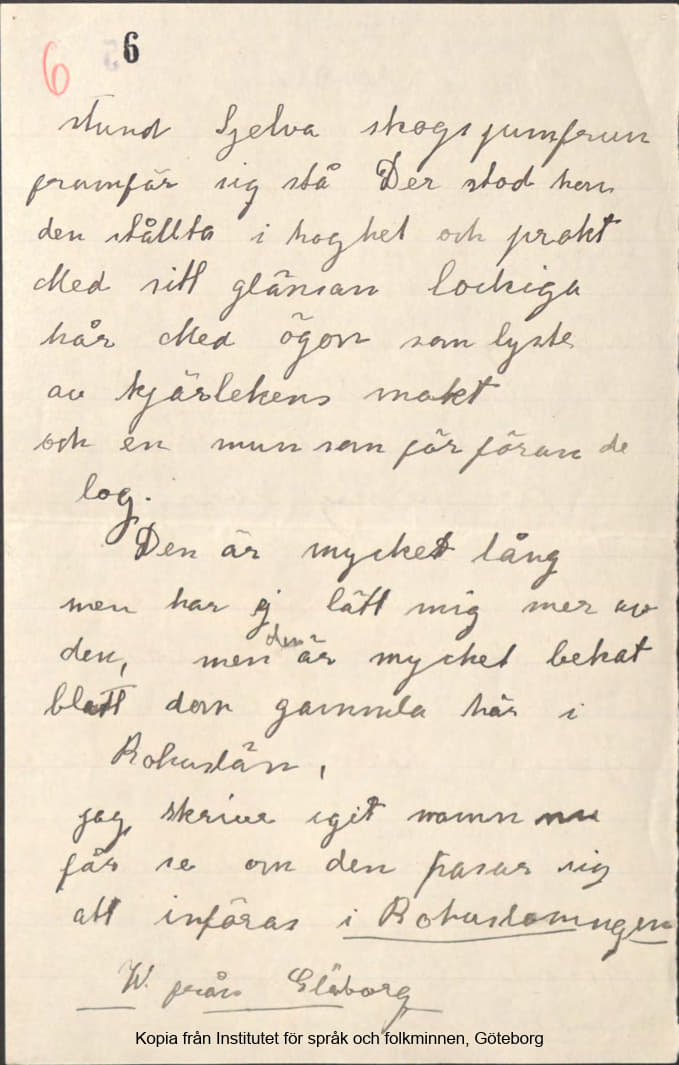 6 6
stund Sjelva skogsjumfrun
framför sig stå Der stod hon
den stållta i hoghet och prakt
Med sitt glänsan lockiga
hår Med ögon som lyste
av kjärlekens makt
och en mun som för föran de
log.
Den är mycket lång
men har ej lätt mig mer av
den, men den är mycket bekat
blatt dom gammla här i
Bohuslän,
jag skrive iget namn nu
får se om den pasar sig
att införas i Bohusloningen
W. från Glåborg
Kopia från Institutet för språk och folkminnen, Göteborg